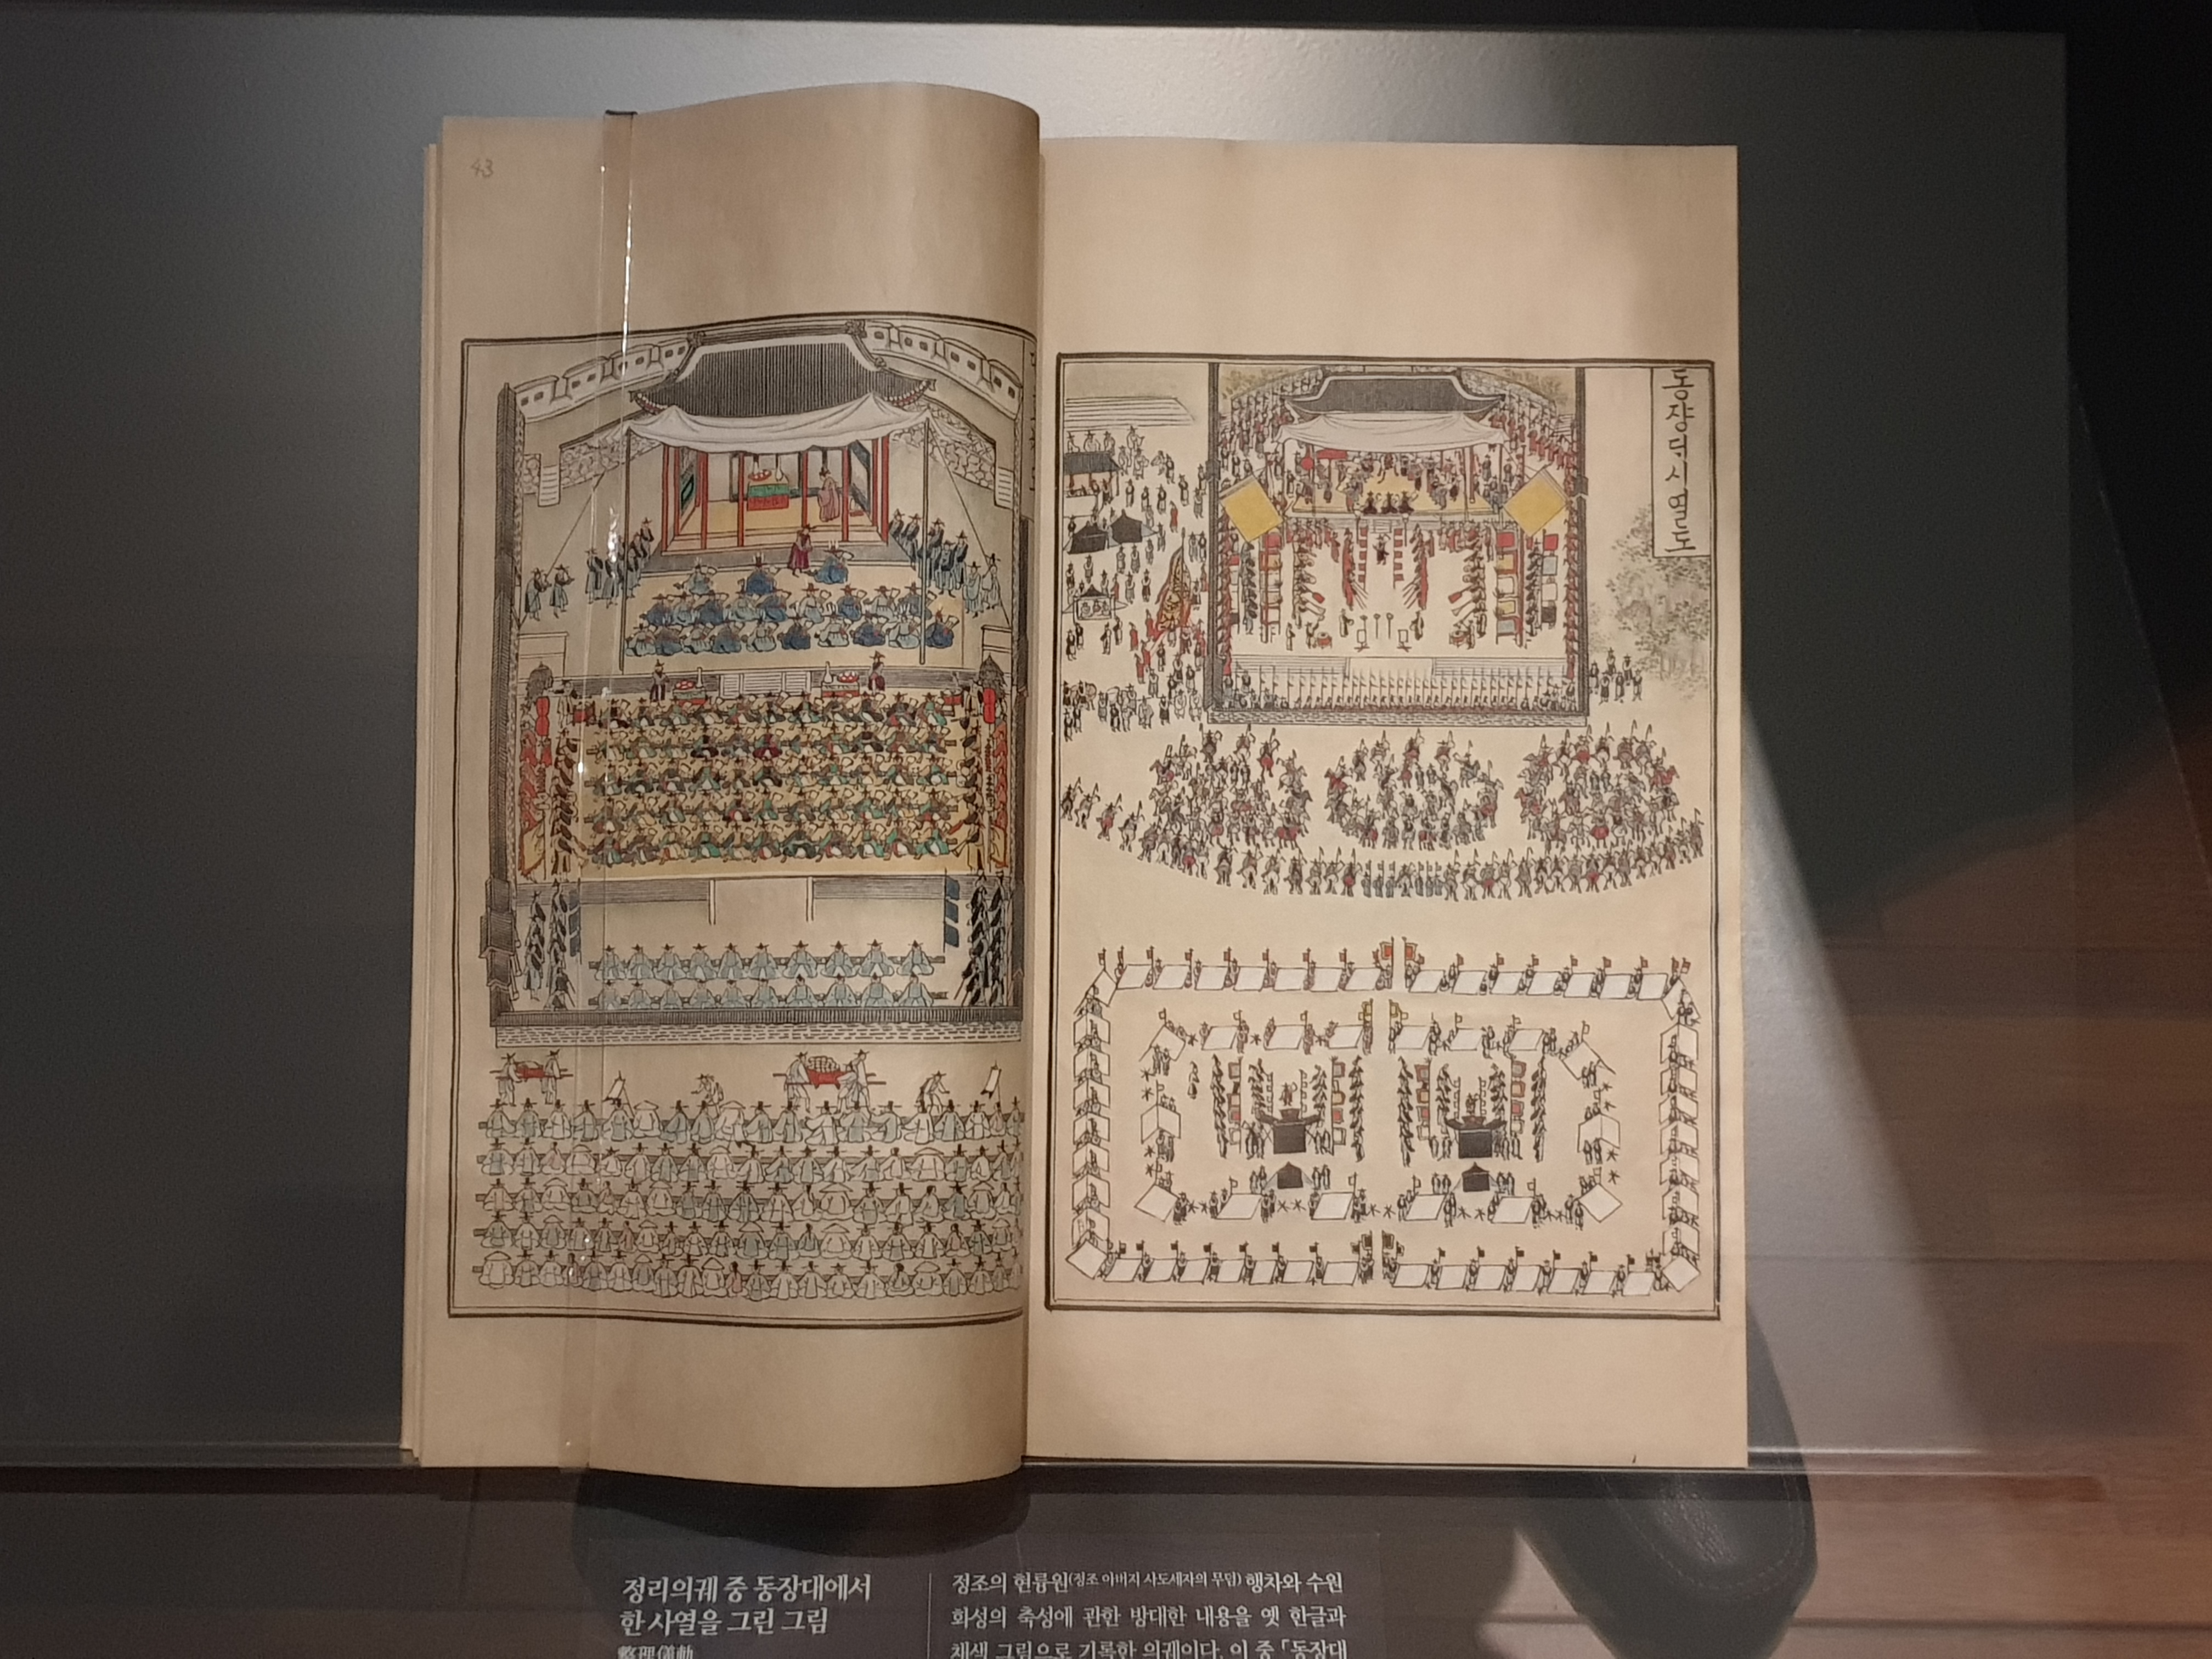 43
동쟝ᄃᆡ시열도
정리의궤 중 동장대에서
한 사열을 그린 그림
整理儀軌
정조의 현륭원(정조 아버지 사도세자의 무덤) 행차와 수원
화성의 축성에 관한 방대한 내용을 옛 한글과
채색 그림으로 기록한 의궤이다. 이 중 「동장대